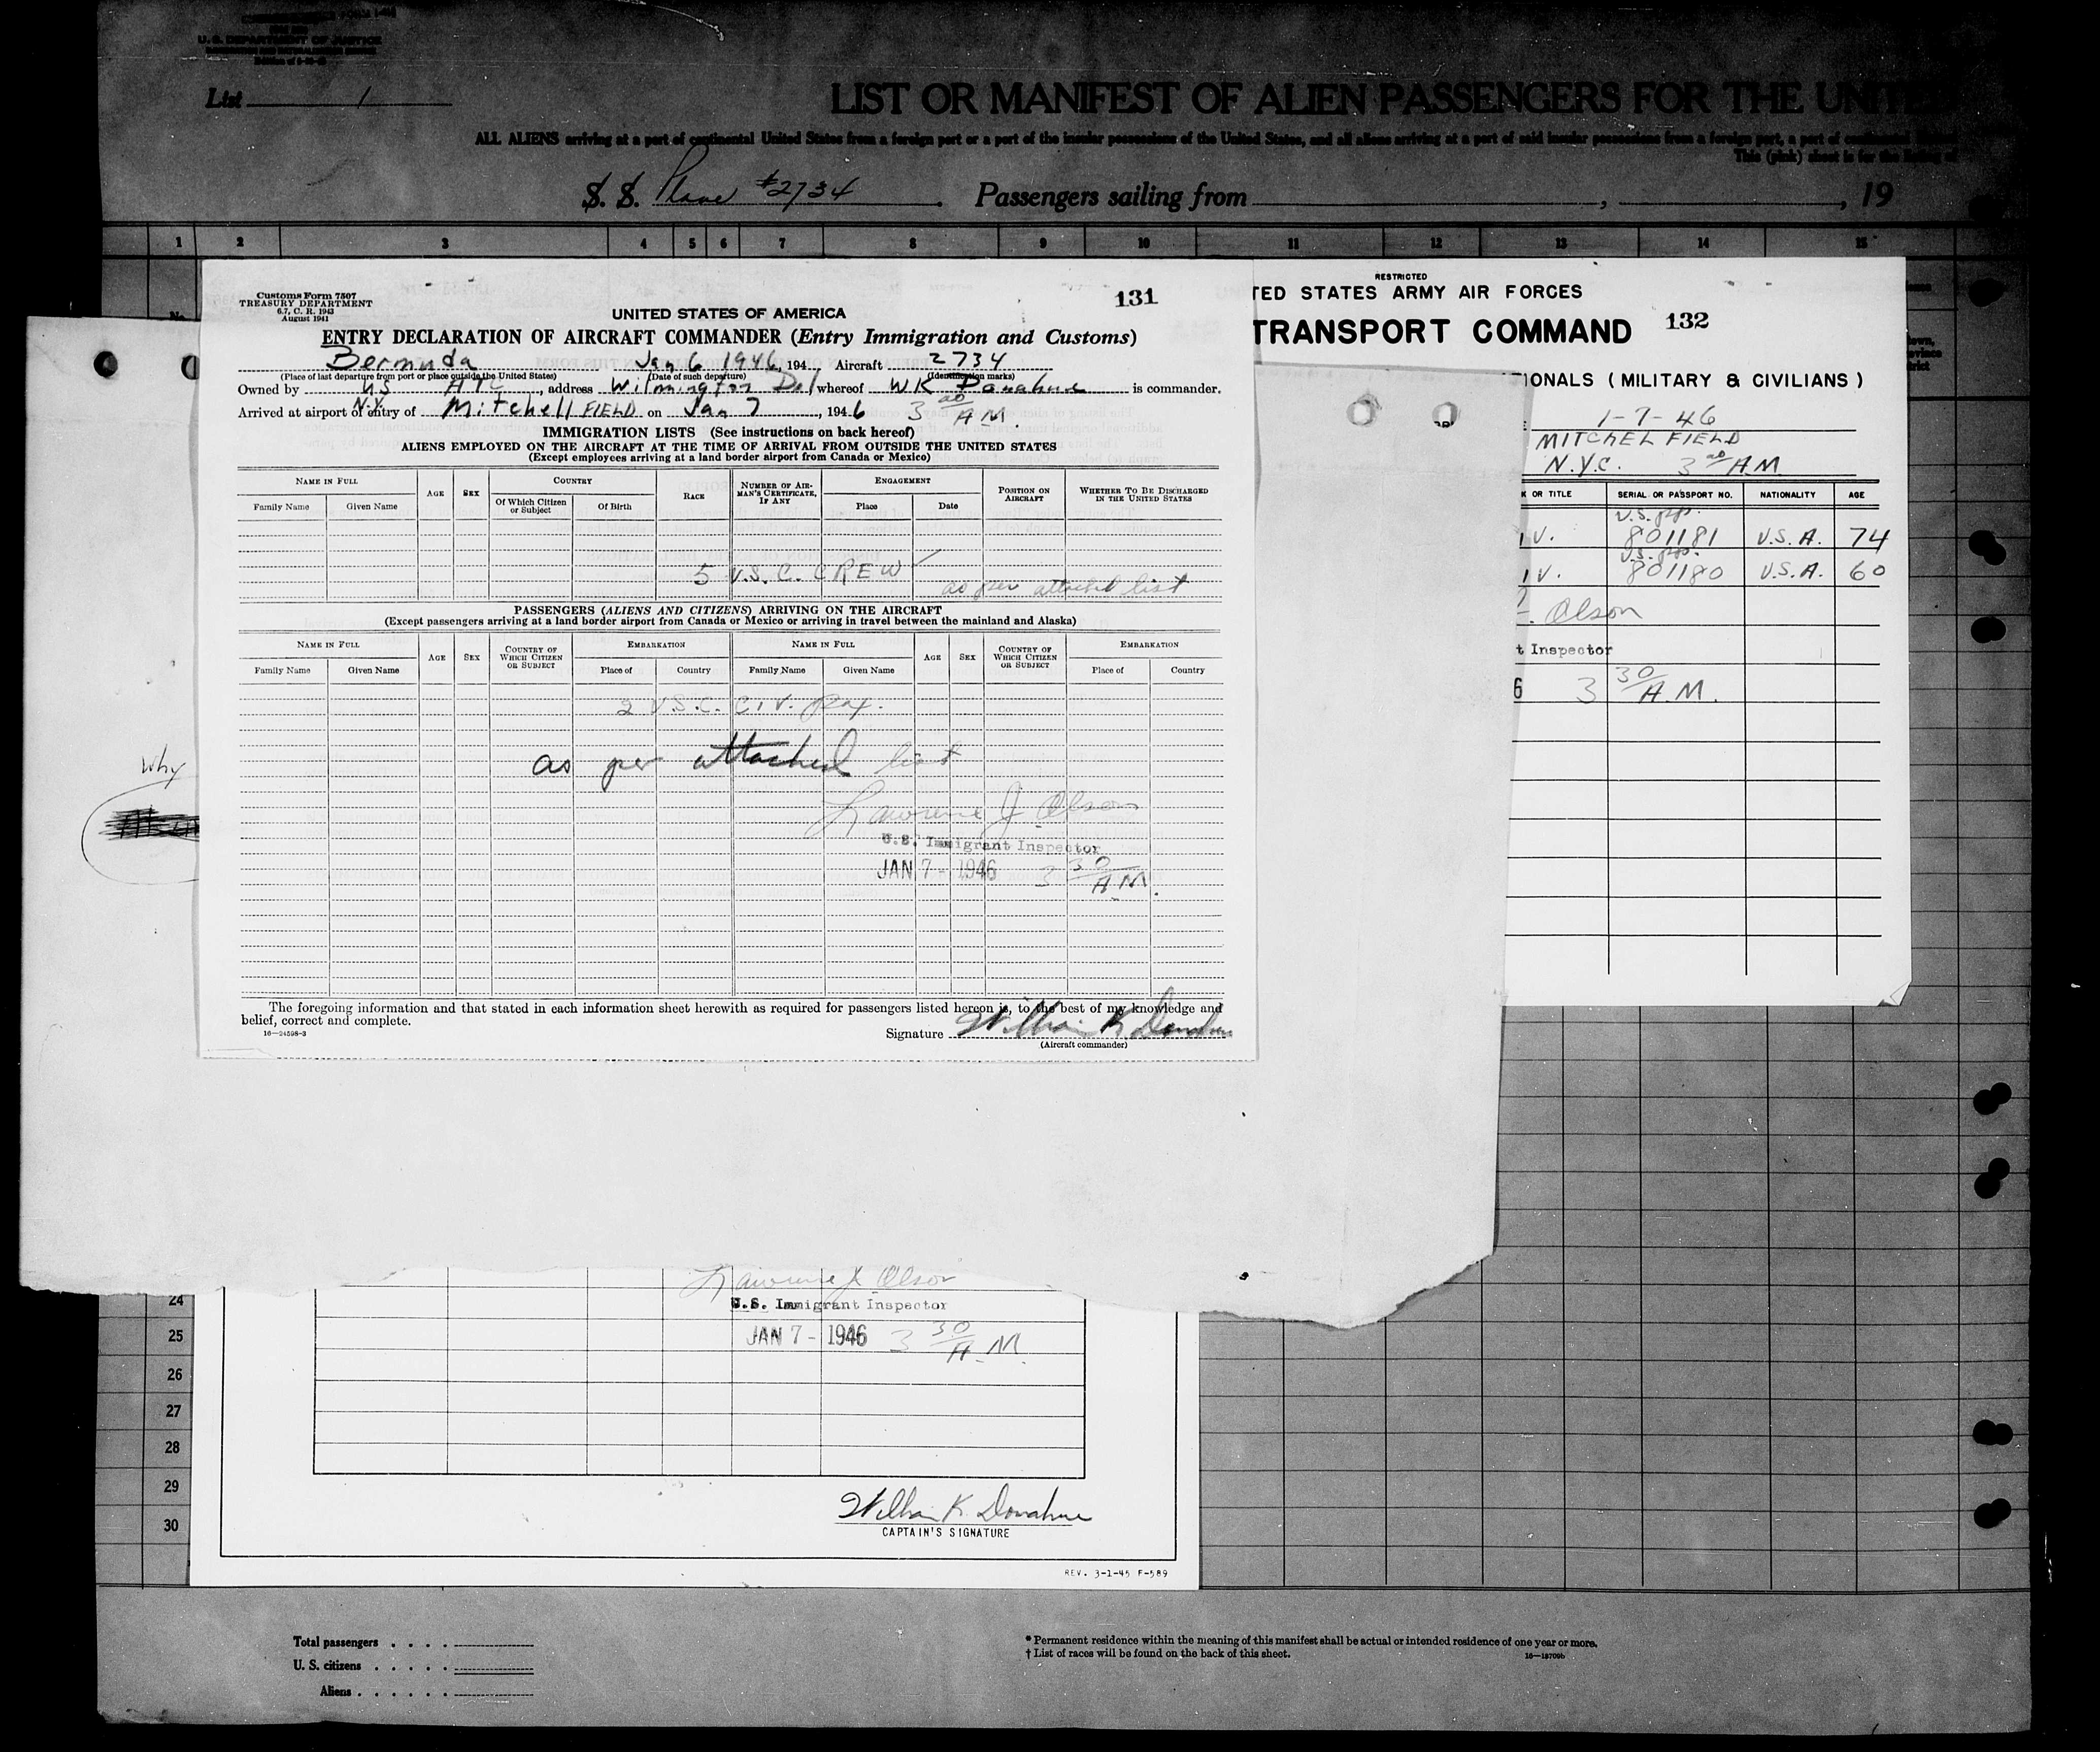 U. S. DEPARTMENT OF JUSTICE
List 1
LIST OR MANIFEST OF ALIEN PASSENGERS FOR THE UNITED
ALL ALIENS arriving at a port of continental United States from a foreign port or a port of the insular possessions of the United States, and all aliens arriving at a port of said insular possessions from a foreign port, a port of continental
This (pink) sheet is for the listing of
S. S. Plane #2734 Passengers sailing from , , 19
1 2 3 4 5 6 7 8 9 10 11 12 13 14 15
Customs Form 7507
TREASURY DEPARTMENT
6.7, C. R. 1943
August 1941
131
UNITED STATES OF AMERICA
ENTRY DECLARATION OF AIRCRAFT COMMANDER (Entry Immigration and Customs)
Bermuda Jan 6 1946, 194 Aircraft 2734
(Place of last departure from port or place outside the United States) (Date of such departure) (Identification marks)
Owned by US ATC, address Wilmington Del, whereof WK Donahue is commander.
Arrived at airport of entry of N.Y. Mitchell FIELD on Jan 7, 1946 3 00 A.M.
IMMIGRATION LISTS (See instructions on back hereof)
ALIENS EMPLOYED ON THE AIRCRAFT AT THE TIME OF ARRIVAL FROM OUTSIDE THE UNITED STATES
(Except employees arriving at a land border airport from Canada or Mexico)
NAME IN FULL AGE SEX COUNTRY RACE NUMBER OF AIRMAN'S CERTIFICATE, IF ANY ENGAGEMENT POSITION ON AIRCRAFT WHETHER TO BE DISCHARGED IN THE UNITED STATES
Family Name Given Name Of Which Citizen or Subject Of Birth Place Date
5 U.S.C. CREW
as per attached list
PASSENGERS (ALIENS AND CITIZENS) ARRIVING ON THE AIRCRAFT
(Except passengers arriving at a land border airport from Canada or Mexico or arriving in travel between the mainland and Alaska)
NAME IN FULL AGE SEX COUNTRY OF WHICH CITIZEN OR SUBJECT EMBARKATION NAME IN FULL AGE SEX COUNTRY OF WHICH CITIZEN OR SUBJECT EMBARKATION
Family Name Given Name Place of Country Family Name Given Name Place of Country
2 U.S.C. CIV. Pax.
as per attached list
Lawrence J Olson
U.S. Immigrant Inspector
JAN 7 - 1946 3 30 A.M.
The foregoing information and that stated in each information sheet herewith as required for passengers listed hereon is, to the best of my knowledge and
belief, correct and complete.
16—24598-3
Signature William K Donahue
(Aircraft commander)
why
RESTRICTED
TED STATES ARMY AIR FORCES
TRANSPORT COMMAND 132
IONALS (MILITARY & CIVILIANS)
1-7-46
MITCHEL FIELD
N.Y.C. 3 00 A.M
K OR TITLE SERIAL OR PASSPORT NO. NATIONALITY AGE
IV. U.S. ppt. 801181 U.S.A. 74
IV. U.S. ppt. 801180 U.S.A. 60
Olson
t Inspector
6 3 30 A.M.
Lawrence J Olson
U.S. Immigrant Inspector
JAN 7 - 1946 3 30 A.M.
24
25
26
27
28
29
30
William K. Donahue
CAPTAIN'S SIGNATURE
REV. 3-1-45 F-589
Total passengers . . . .
U. S. citizens . . . . .
Aliens . . . . . .
* Permanent residence within the meaning of this manifest shall be actual or intended residence of one year or more.
† List of races will be found on the back of this sheet.
16—18709b